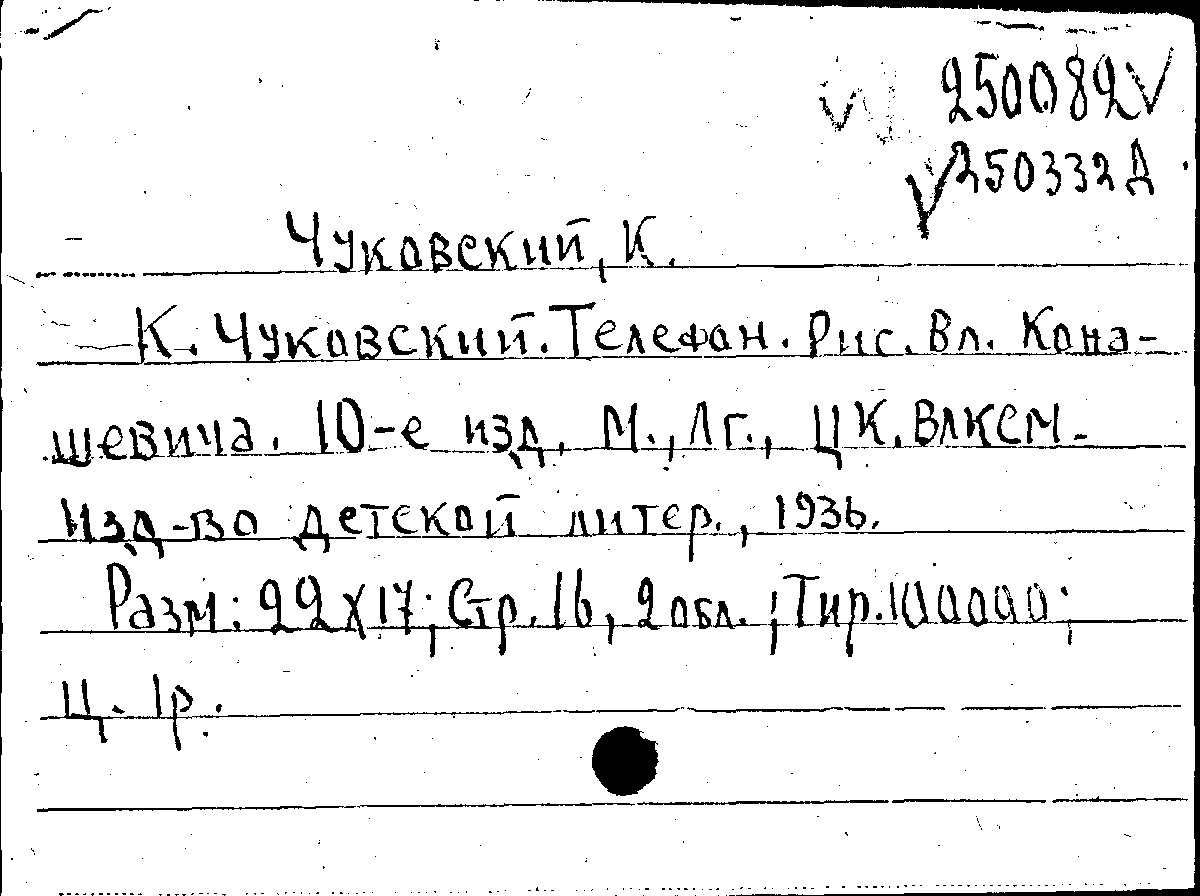 250082
250332 Д
Чуковский, К.
К. Чуковский. Телефон. Рис. Вл. Кона-
шевича. 10-е изд. М., Лг., ЦК. ВЛКСМ.
Изд-во детской литер., 1936.
Разм: 22х17; Стр. 16, 2 обл.; Тир. 100000;
Ц. 1р.